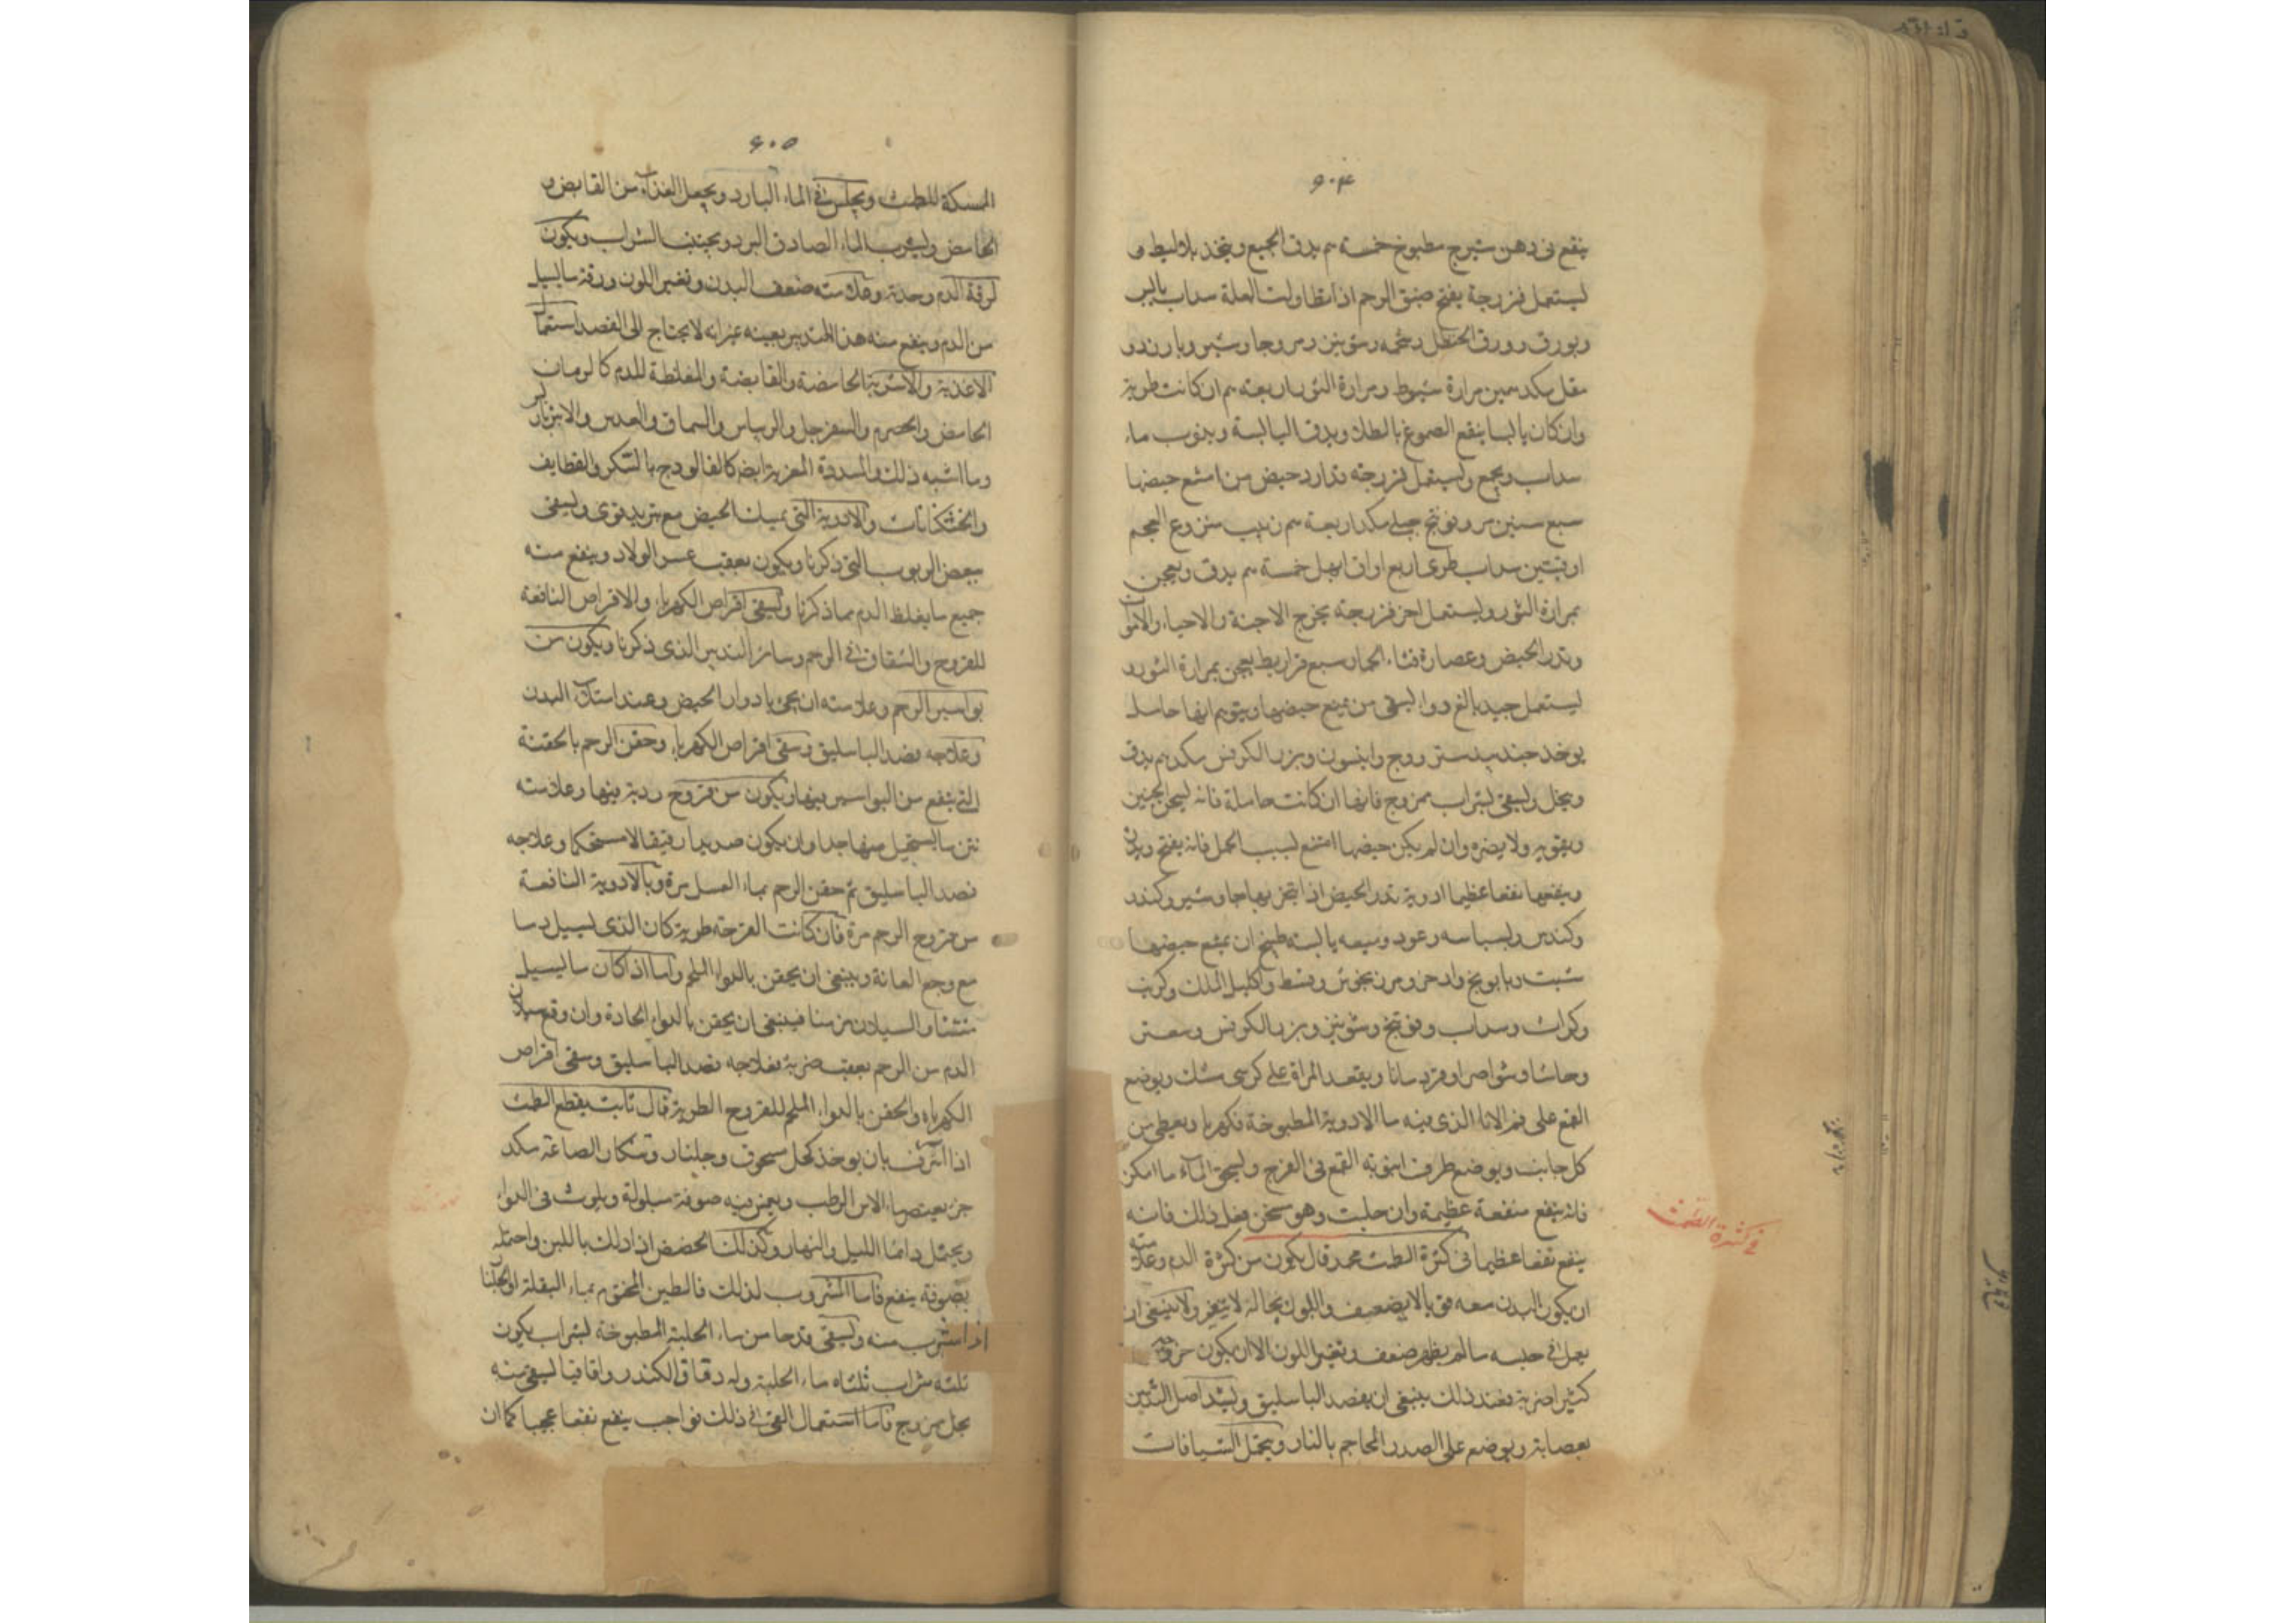 ٦٠٤
ينقع فى دهن شيرج مطبوخ خمسة م يدق الجميع ويتخذ بلاليط و
ليستعمل فرزجة يفتح ضيق الرحم اذا تطاولت العلة سداب يابس
وبورق وورق الحنظل وشحمه وشونيز ومر وجاوشير وبارزد و
مقل مكد مبين مرارة شبوط ومرارة الثور اربعة م ان كانت طرية
وان كان يابسا ينقع الصموغ بالطلا ويدق اليابسة ويذوب ماء
سداب ويجمع ويستعمل فرزجه تدارد حيض من امتنع حيضها
سبع سنين مر وفوتنج جبلى مكد اربعة م زبيب منزوع العجم
اوقيتين سداب طرى اربع اواق ابهل خمسة م يدق ويعجن
بمرارة الثور ويستعمل اخر فرزجته يخرج الاجنة والاحياء والاموات
وتدر الحيض وعصارة قثاء الحمار سبع قراريط يعجن بمرارة الثور و
ليستعمل جيد بالغ دوا ليسقى من يمنع حيضها ويتوهم انها حامله
يوخذ جندبيدستر ووج وانيسون وبزر الكرفس مكد م يدق
وينخل ويسقى بشراب ممزوج فانها ان كانت حاملة فانه ليسخن الجنين
ويقويه ولا يضره وان لم يكن حيضها امتنع لسبب الحمل فانه يفتح ويدر
وينفعها نفعا عظيما ادوية تدر الحيض اذا تبخر بها جاوشير وكندر
وكندس وبسباسه وعود وميعه يابسة طبيخ ان يمنع حيضها
شبت وبابونج واذخر ومرزنجوش وقسط واكليل الملك وكرنب
وكراث وسداب وفوتنج وشونيز وبزر الكرفس وصعتر
وحاشا وشواصرا وقردمانا ويقعد المراة على كرسى مشك ويوضع
القمع على فم الانا الذى فيه ما الادوية المطبوخة فكهربا ويعطى من
كل جانب ويوضع طرف انبوبه القمع فى الفرج وليسحق الماء ما امكن
فانه ينفع منفعة عظيمة وان حلبت وهو سخن فعل ذلك فانه
ينفع نفعا عظيما فى كثرة الطمث محمد قال يكون من كثرة الدم وعلامته
ان يكون البدن معه قويا لا يضعف واللون بحاله لا يتغير ولا ينبغى ان
يعمل فى حبسه ما لم يظهر ضعف وتغير اللون الا ان يكون خروجه
كثيرا ضربة فعند ذلك ينبغى ان يفصد الباسليق ويشد اصل الثديين
بعصابة ويوضع على الصدر المحاجم بالنار ويحتمل الشيافات
فى كثرة الطمث
٦٠٥
الممسكة للطمث ويجلس فى الماء البارد ويجعل الغذاء من القابض و
الحامض وليشرب الماء الصادق البرد ويجتنب الشراب ويكون
لرقة الدم وحدته وعلامته ضعف البدن وتغير اللون ورقة ما يسيل
من الدم وينفع منه هذا التدبير بعينه غير انه لا يحتاج الى الفصد استعمال
الاغذية والاشربة الحامضة والقابضة والمغلظة للدم كالرمان
الحامض والحصرم والسفرجل والريباس والسماق والعدس والانبرباريس
وما اشبه ذلك والمسددة المغرية ايضا كالفالوذج بالسكر والقطايف
والخشكنانات والادوية التى تمسك الحيض مع تبريد قوى ويسقى
ببعض الربوب التى ذكرنا ويكون بعقب عسر الولاد وينفع منه
جميع ما يغلظ الدم مما ذكرنا ويسقى اقراص الكهربا، والاقراص النافعة
للقروح والشقاق فى الرحم وسائر التدبير الذى ذكرنا ويكون من
بواسير الرحم وعلامته ان يجئ بادوار الحيض وعند امتلاء البدن
وعلاجه فصد الباسليق وسقى اقراص الكهربا، وحقن الرحم بالحقنة
التى ينفع من البواسير فيها ويكون من قروح ردية فيها وعلامته
نتن ما يستحيل منها جدا وان يكون صديدا رقيقا لا مستحكما وعلاجه
فصد الباسليق ثم حقن الرحم بماء العسل مرة وبالادوية النافعة
من قروح الرحم مرة فان كانت القرحة طرية كان الذى يسيل دما
مع وجع العانة وينبغى ان يحقن بالدواء الملحم واما اذا كان ما يسيل
منتنا والسيلان مزمنا فينبغى ان يحقن بالدواء الحادة وان وقع سيلان
الدم من الرحم بعقب ضربة فعلاجه فصد الباسليق وسقى اقراص
الكهرباء والحقن بالدواء الملحم للقروح الطرية قال ثابت يقطع الطمث
اذا انزف بان يوخذ كحل مسحوق وجلنار وقنكار الصاغة مكد
جز بعتصر ماء الاس الرطب ويغمر فيه صوفة مبلولة ويلوث فى الدواء
ويحتمل دائما الليل والنهار وكذلك الحضض اذا دلك باللبن واحتمله
بصوفة ينفع فاما المشروب لذلك فالطين المختوم بماء البقلة او الجلنار
اذا شرب منه وليسقى قدحا من ماء الحلبة المطبوخة بشراب يكون
ثلثه شراب ثلثاه ماء الحلبة وله دقاق الكندر واقاقيا ليسقى منه
بخل ممزوج فاما استعمال القئ فى ذلك فواجب ينفع نفعا عجيبا كما ان